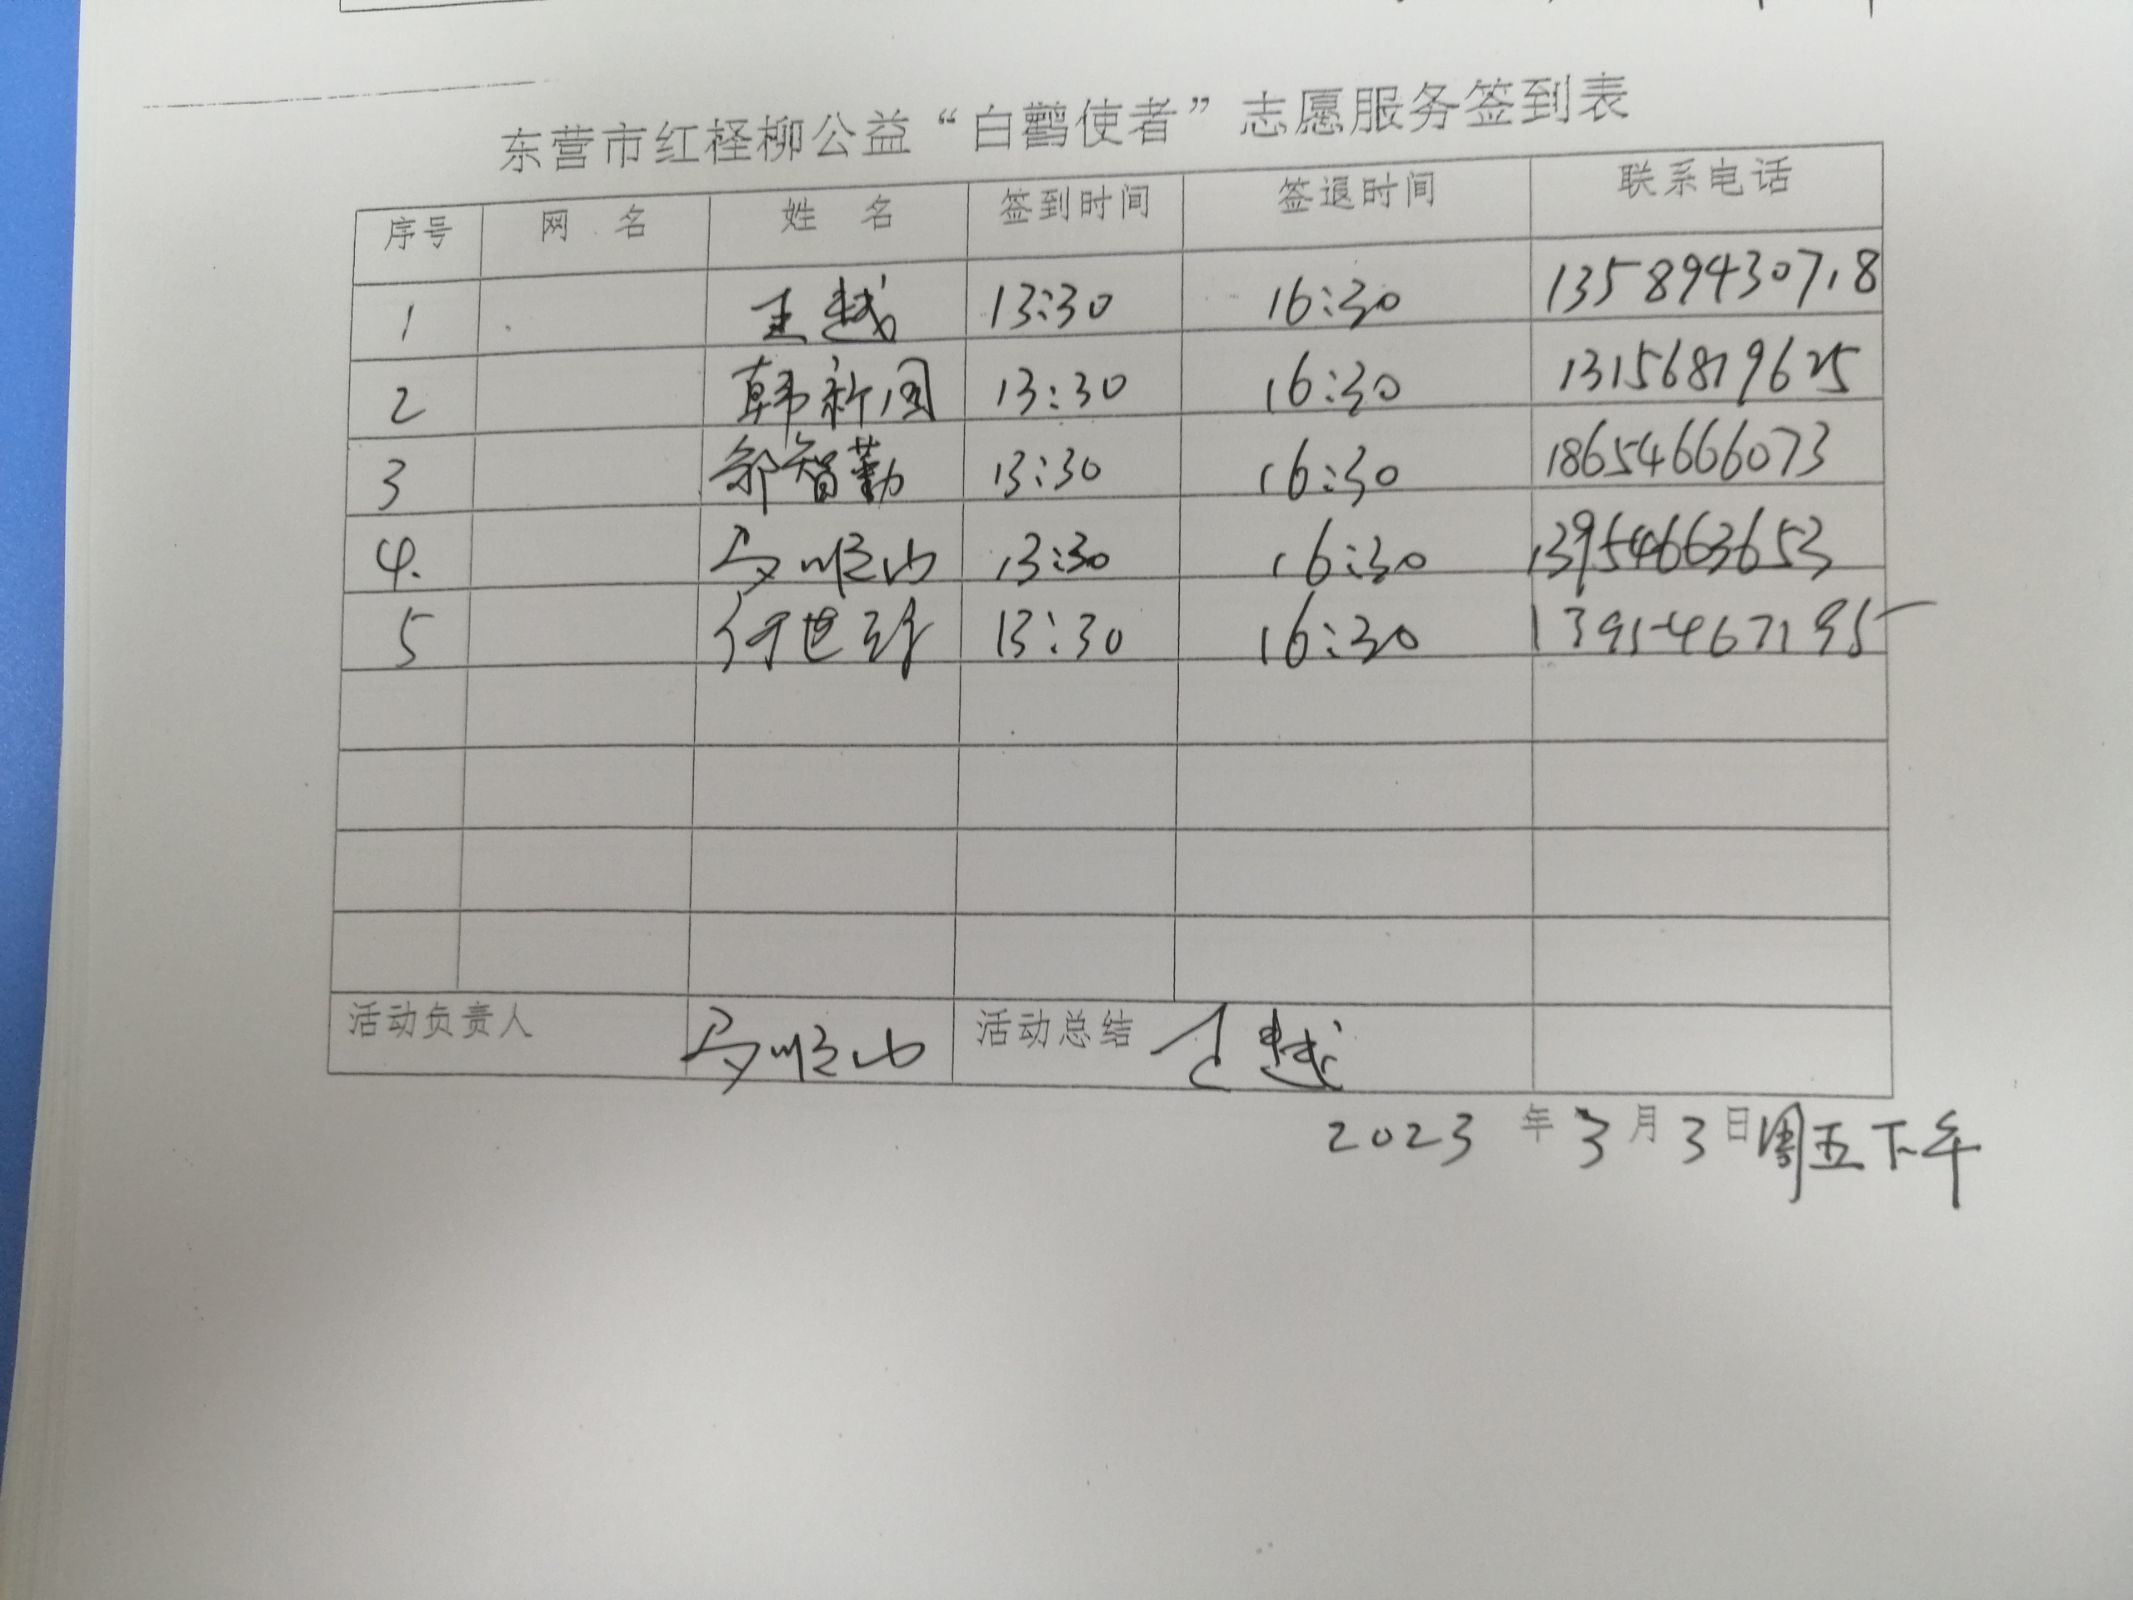 东营市红柽柳公益“白鹳使者”志愿服务签到表
序号 网 名 姓 名 签到时间 签退时间 联系电话
1 王越 13:30 16:30 13589430718
2 韩新国 13:30 16:30 13156819625
3 郭智勤 13:30 16:30 18654666073
4. 马顺山 13:30 16:30 13954663653
5 何世 13:30 16:30 1395467195
活动负责人 马顺山 活动总结 王越
2023 年 3 月 3 日 周五下午